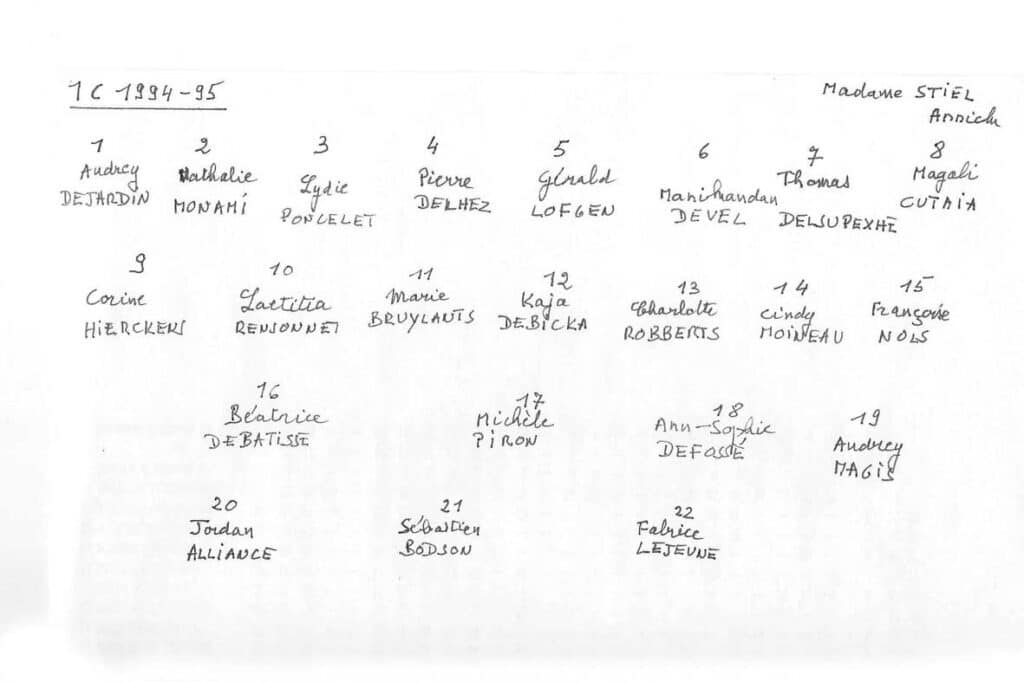 1C 1994-95
Madame STIEL
Annick
1 2 3 4 5 6 7 8
Audrey Nathalie Lydie Pierre Gérald Manihandan Thomas Magali
DEJARDIN MONAMI PONCELET DELHEZ LOFGEN DEVEL DELSUPEXHE CUTAIA
9 10 11 12 13 14 15
Corine Laetitia Marie Kaja Charlotte Cindy Françoise
HIERCKENS RENSONNET BRUYLANTS DEBICKA ROBBERTS MOINEAU NOLS
16 17 18 19
Béatrice Michèle Ann-Sophie Audrey
DEBATISSE PIRON DEFOSSÉ MAGIS
20 21 22
Jordan Sébastien Fabrice
ALLIANCE BODSON LEJEUNE